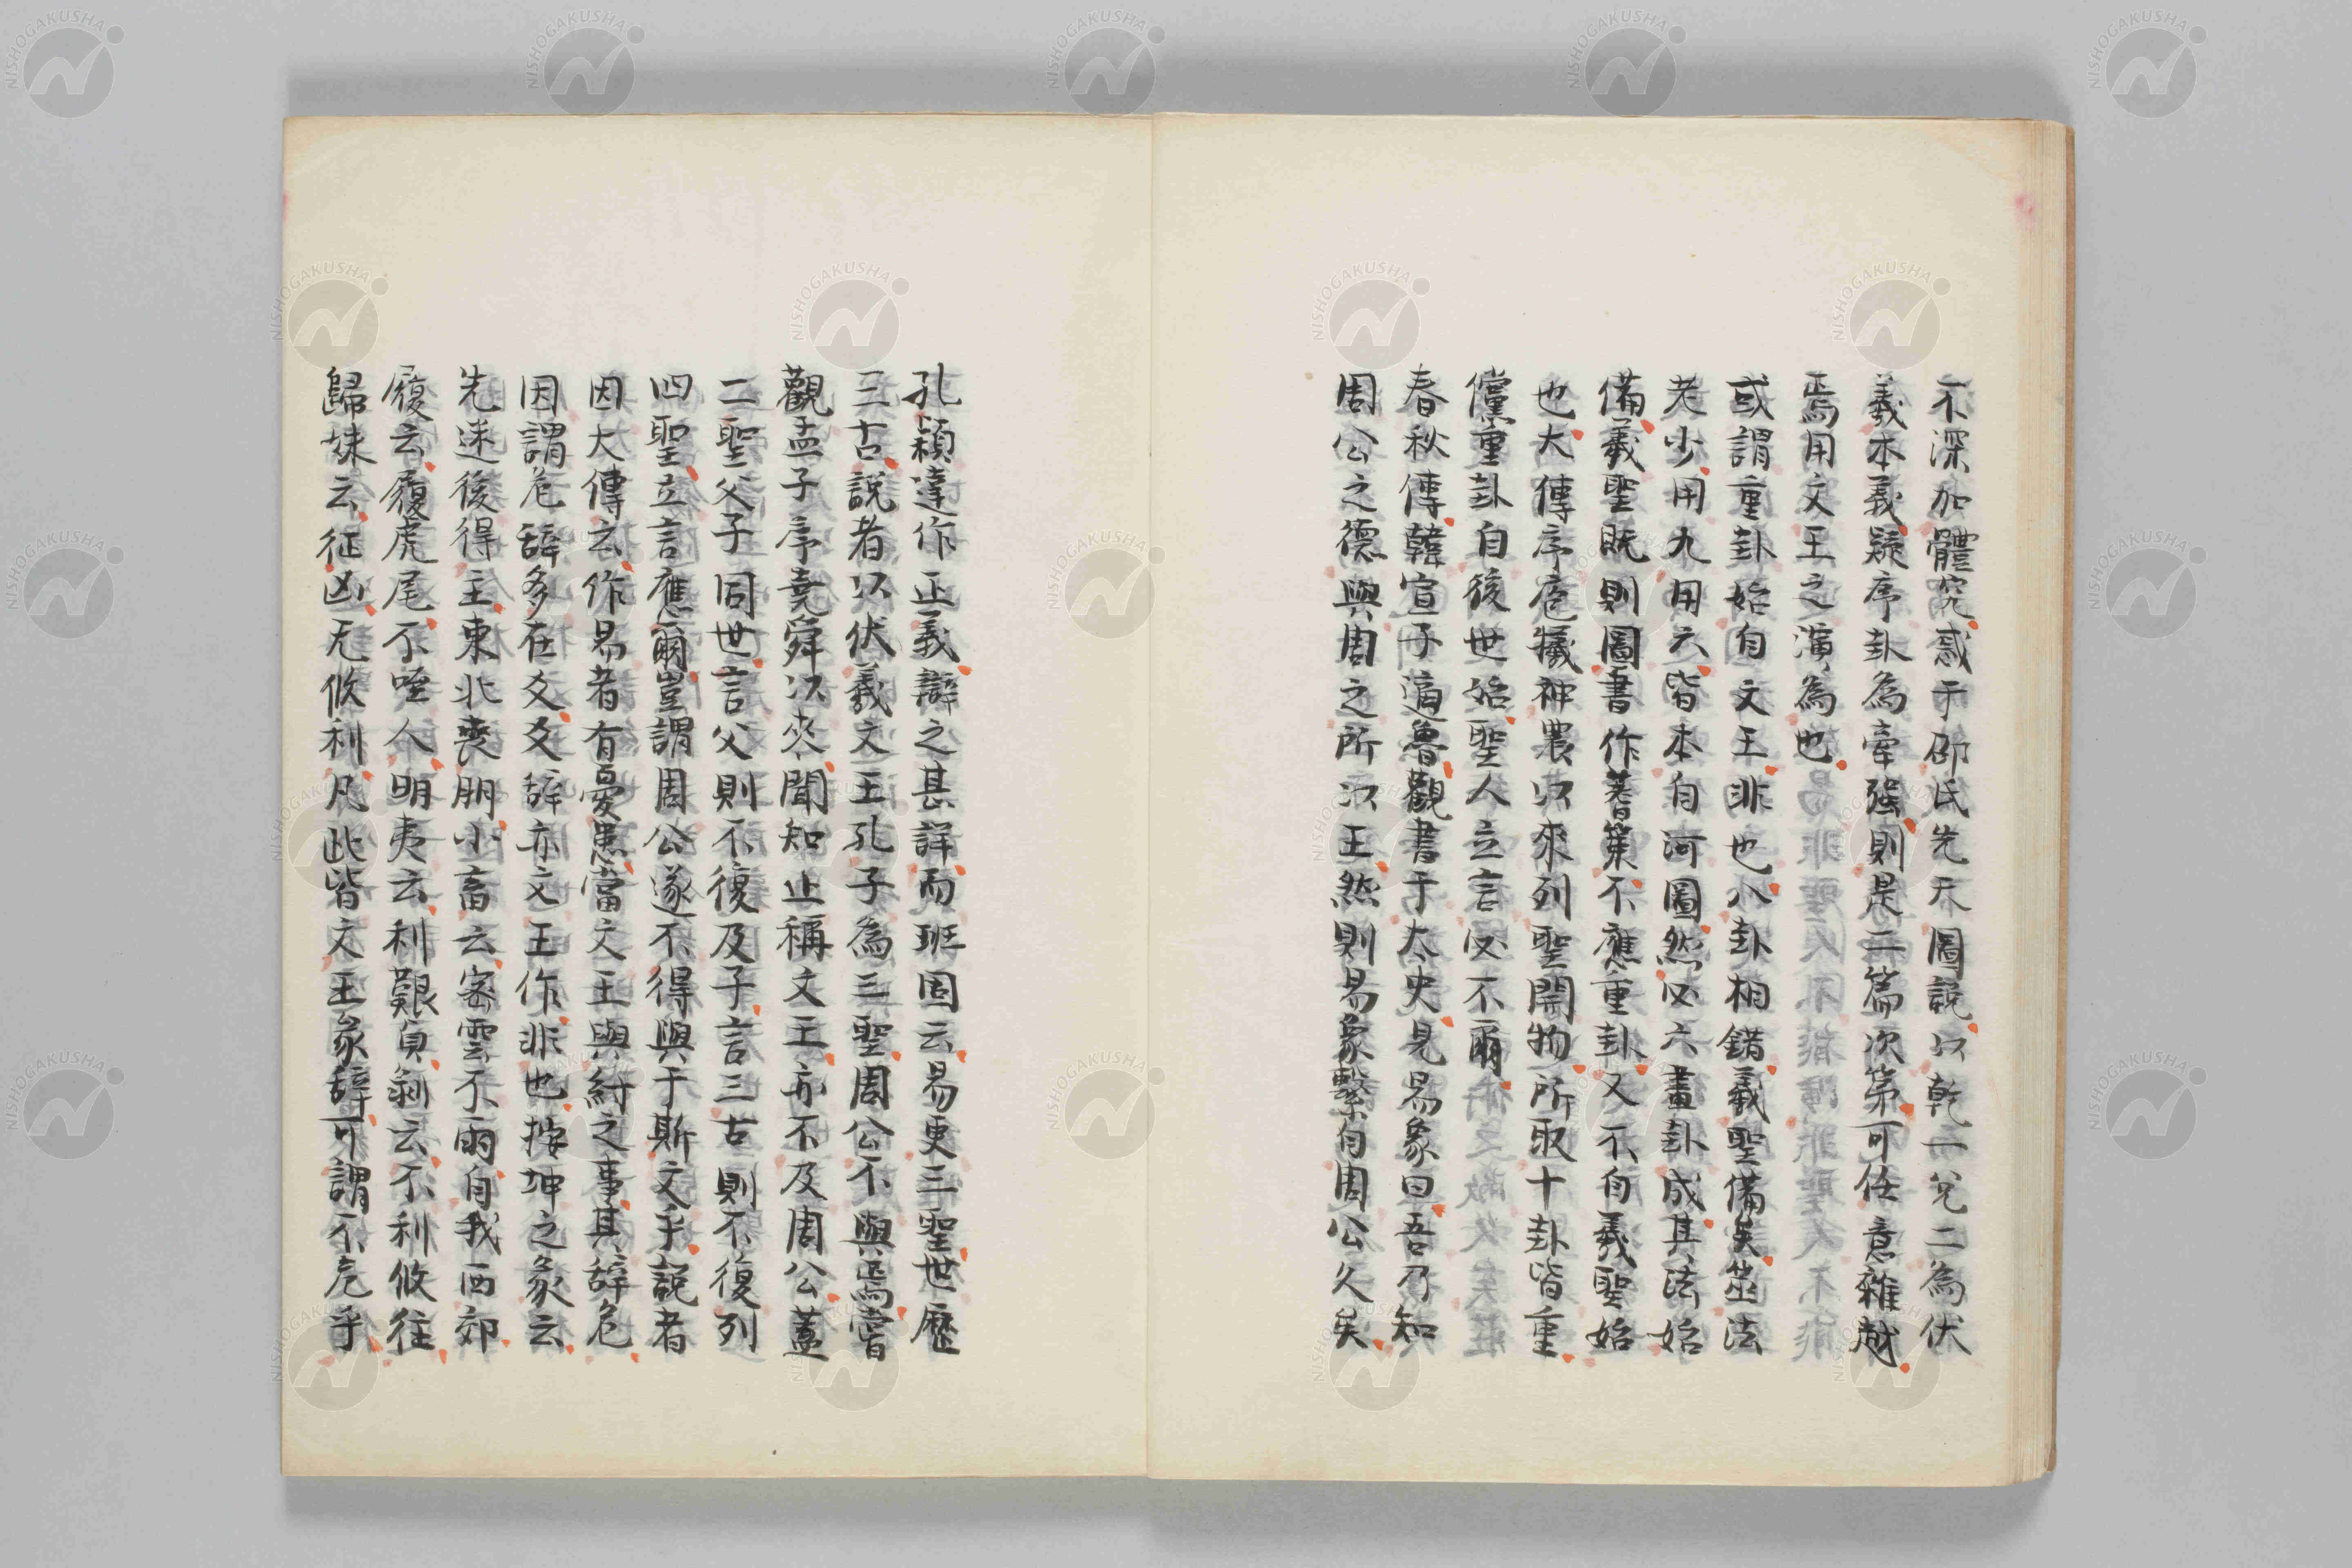 不深加體究惑于邵氏先天圖說以乾一兌二為伏
羲本義疑序卦為牽强則是二篇次第可任意雜越
焉用文王之演為也
或謂重卦始自文王非也八卦相錯羲聖備矣筮法
老少用九用六皆本自河圖然必六畫卦成其法始
備羲聖既則圖書作蓍策不應重卦又不自羲聖始
也大傳序庖犧神農以來列聖開物所取十卦皆重
儻重卦自後世始聖人立言必不爾
春秋傳韓宣子適魯觀書于太史見易象曰吾乃知
周公之德與周之所以王然則易象繫自周公久矣
孔穎達作正義辯之甚詳而班固云易更三聖世歷
三古說者以伏羲文王孔子為三聖周公不與焉嘗
觀孟子序堯舜以來聞知止稱文王亦不及周公蓋
二聖父子同世言父則不復及子言三古則不復列
四聖立言應爾豈謂周公遂不得與于斯文乎說者
因大傳云作易者有憂患當文王與紂之事其辭危
因謂危辭多在爻爻辭亦文王作非也按坤之彖云
先迷後得主東北喪朋小畜云密雲不雨自我西郊
履云履虎尾不咥人明夷云利艱貞剝云不利攸往
歸妹云征凶无攸利凡此皆文王彖辭可謂不危乎
NISHOGAKUSHA